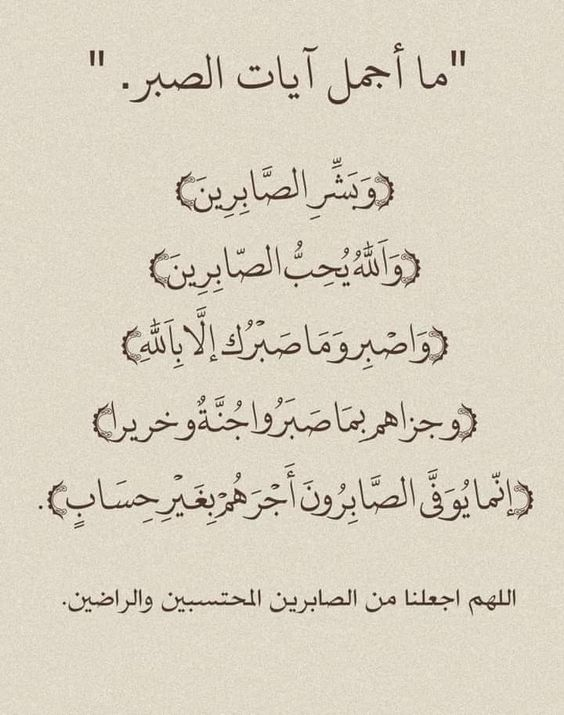 "ما أجمل آيات الصبر. "
﴿وَبَشِّرِ الصَّابِرِينَ﴾
﴿وَاَللَّهُ يُحِبُّ الصّابِرِينَ﴾
﴿وَاصْبِر وَمَا صَبْرُك إلَّا بِاَللَّهِ﴾
﴿وجزاهم بِمَا صَبَرُوا جُنَّةٌ وخريرا﴾
﴿إنّما يُوَفَّى الصَّابِرُونَ أَجْرَهُمْ بِغَيْرِ حِسَابٍ﴾.
اللهم اجعلنا من الصابرين المحتسبين والراضين.